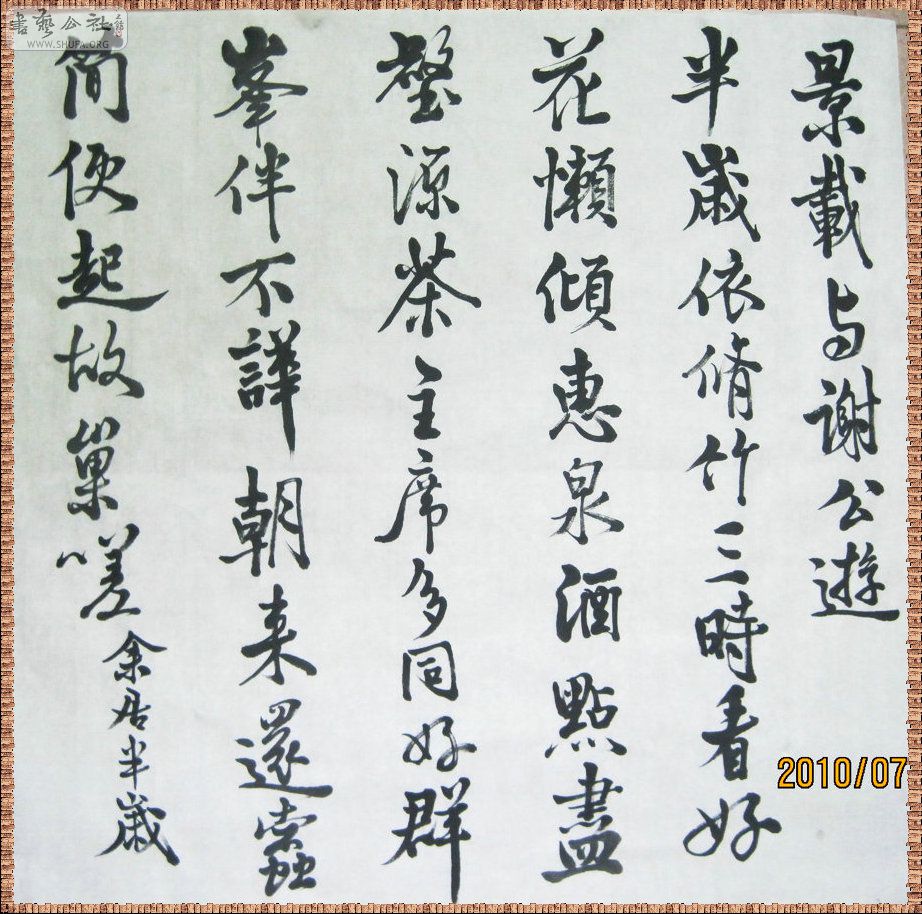 景載与謝公遊
半歲依脩竹三時看好
花懶傾惠泉酒點盡
壑源茶主席多同好群
峯伴不譁朝来還蠹
簡便起故巢嗟余居半歲
書藝公社
WWW.SHUFA.ORG
2010/07